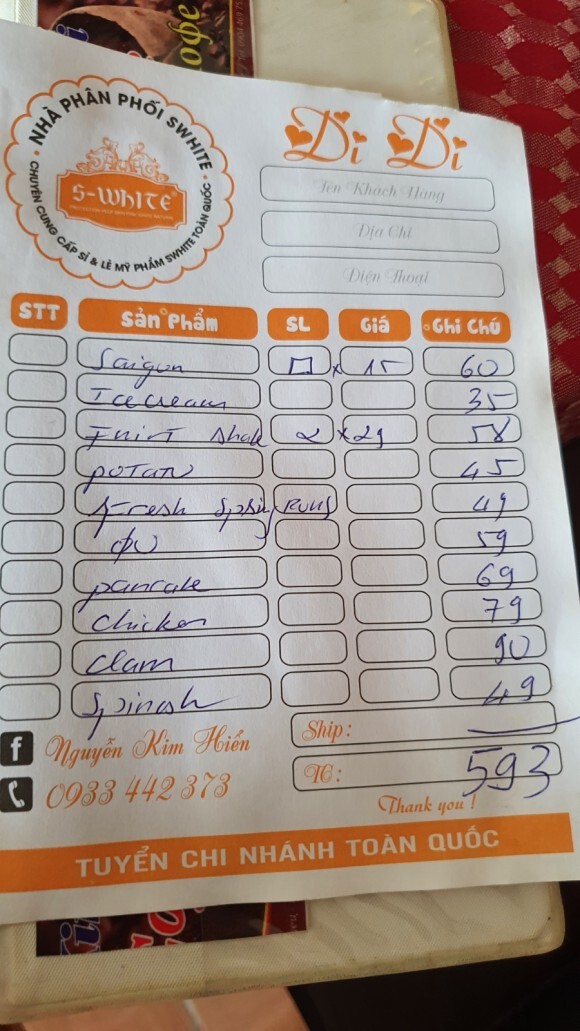 NHÀ PHÂN PHỐI SWHITE
S-WHITE
CHUYÊN CUNG CẤP SỈ & LẺ MỸ PHẨM SWHITE TOÀN QUỐC
Di Di
Tên Khách Hàng
Địa Chỉ
Điện Thoại
STT Sản Phẩm SL Giá Ghi Chú
Saigon □ x 15 60
Icecream 35
Fruit shake 2 x 29 58
potato 45
fresh spring rung 49
фо 59
pancake 69
chicken 79
clam 90
Spinash 49
Ship:
TC: 593
Nguyễn Kim Hiển
0933 442 373
Thank you !
TUYỂN CHI NHÁNH TOÀN QUỐC